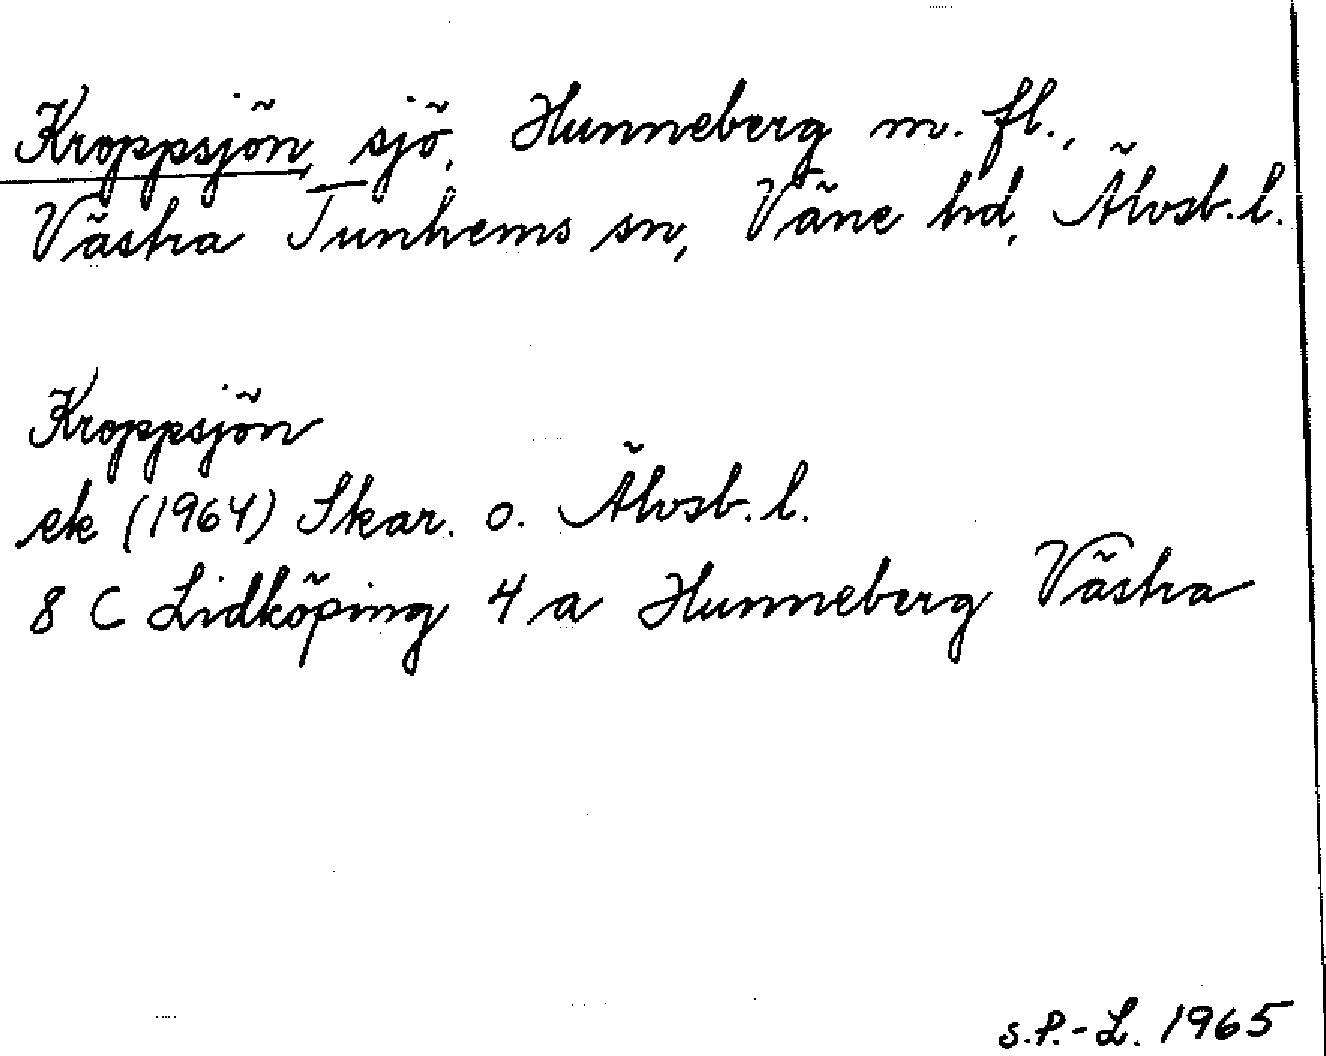 Kroppsjön, sjö, Hunneberg m. fl.,
Västra Tunhems sn, Väne hd, Älvsb. l.
Kroppsjön
ek (1964) Skar. o. Älvsb. l.
8 C Lidköping 4 a Hunneberg Västra
S.P.-L. 1965